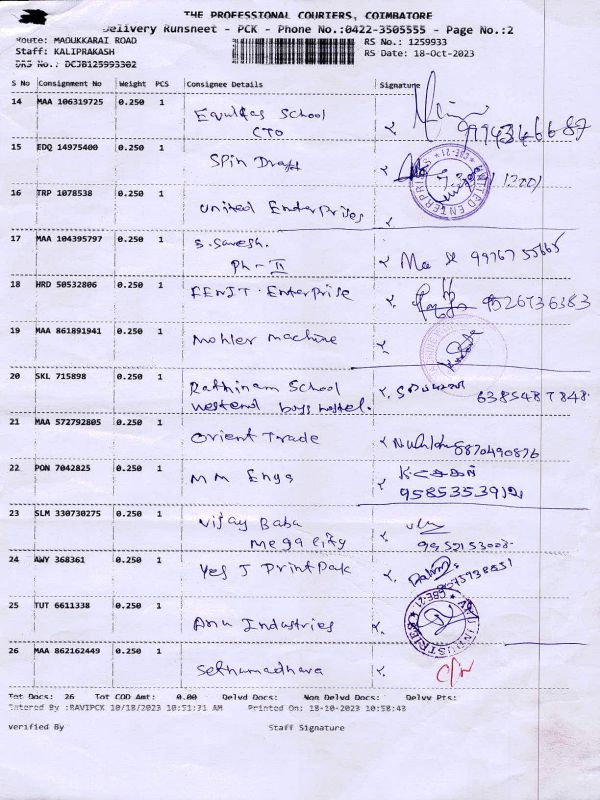 THE PROFESSIONAL COURIERS, COIMBATORE
Delivery Runsheet - PCK - Phone No.:0422-3505555 - Page No.:2
Route: MADUKKARAI ROAD
RS No.: 1259933
Staff: KALIPRAKASH
RS Date: 18-Oct-2023
DRS No.: DCJB125993302
S No Consignment No Weight PCS Consignee Details Signature
14 MAA 106319725 0.250 1 Equitas School
CTO
15 EDQ 14975400 0.250 1 Spin Draft
16 TRP 1078538 0.250 1 United Enterprises
UNITED ENTERPRISES * CBE-21 *
17 MAA 104395797 0.250 1 S. Suresh.
Ph - II
18 HRD 50532806 0.250 1 FENIT. Enterprise
9526736383
19 MAA 861891941 0.250 1 Mohler machine
20 SKL 715898 0.250 1 Rathinam School
Westend boys hostel.
6385487848
21 MAA 572792805 0.250 1 Orient Trade
6870490876
22 PON 7042825 0.250 1 M M Engs
23 SLM 330730275 0.250 1 Vijay Baba
Mega City
24 AWY 368361 0.250 1 Yes J Print Pak
25 TUT 6611338 0.250 1 Anu Industries
ANU INDUSTRIES * CBE-21 *
26 MAA 862162449 0.250 1 Sethumadhava
Tot Docs: 26 Tot COD Amt: 0.00 Delvd Docs: Non Delvd Docs: Delvy Pts:
Entered By :RAVIPCK 10/18/2023 10:51:31 AM Printed On: 18-10-2023 10:58:43
Verified By Staff Signature